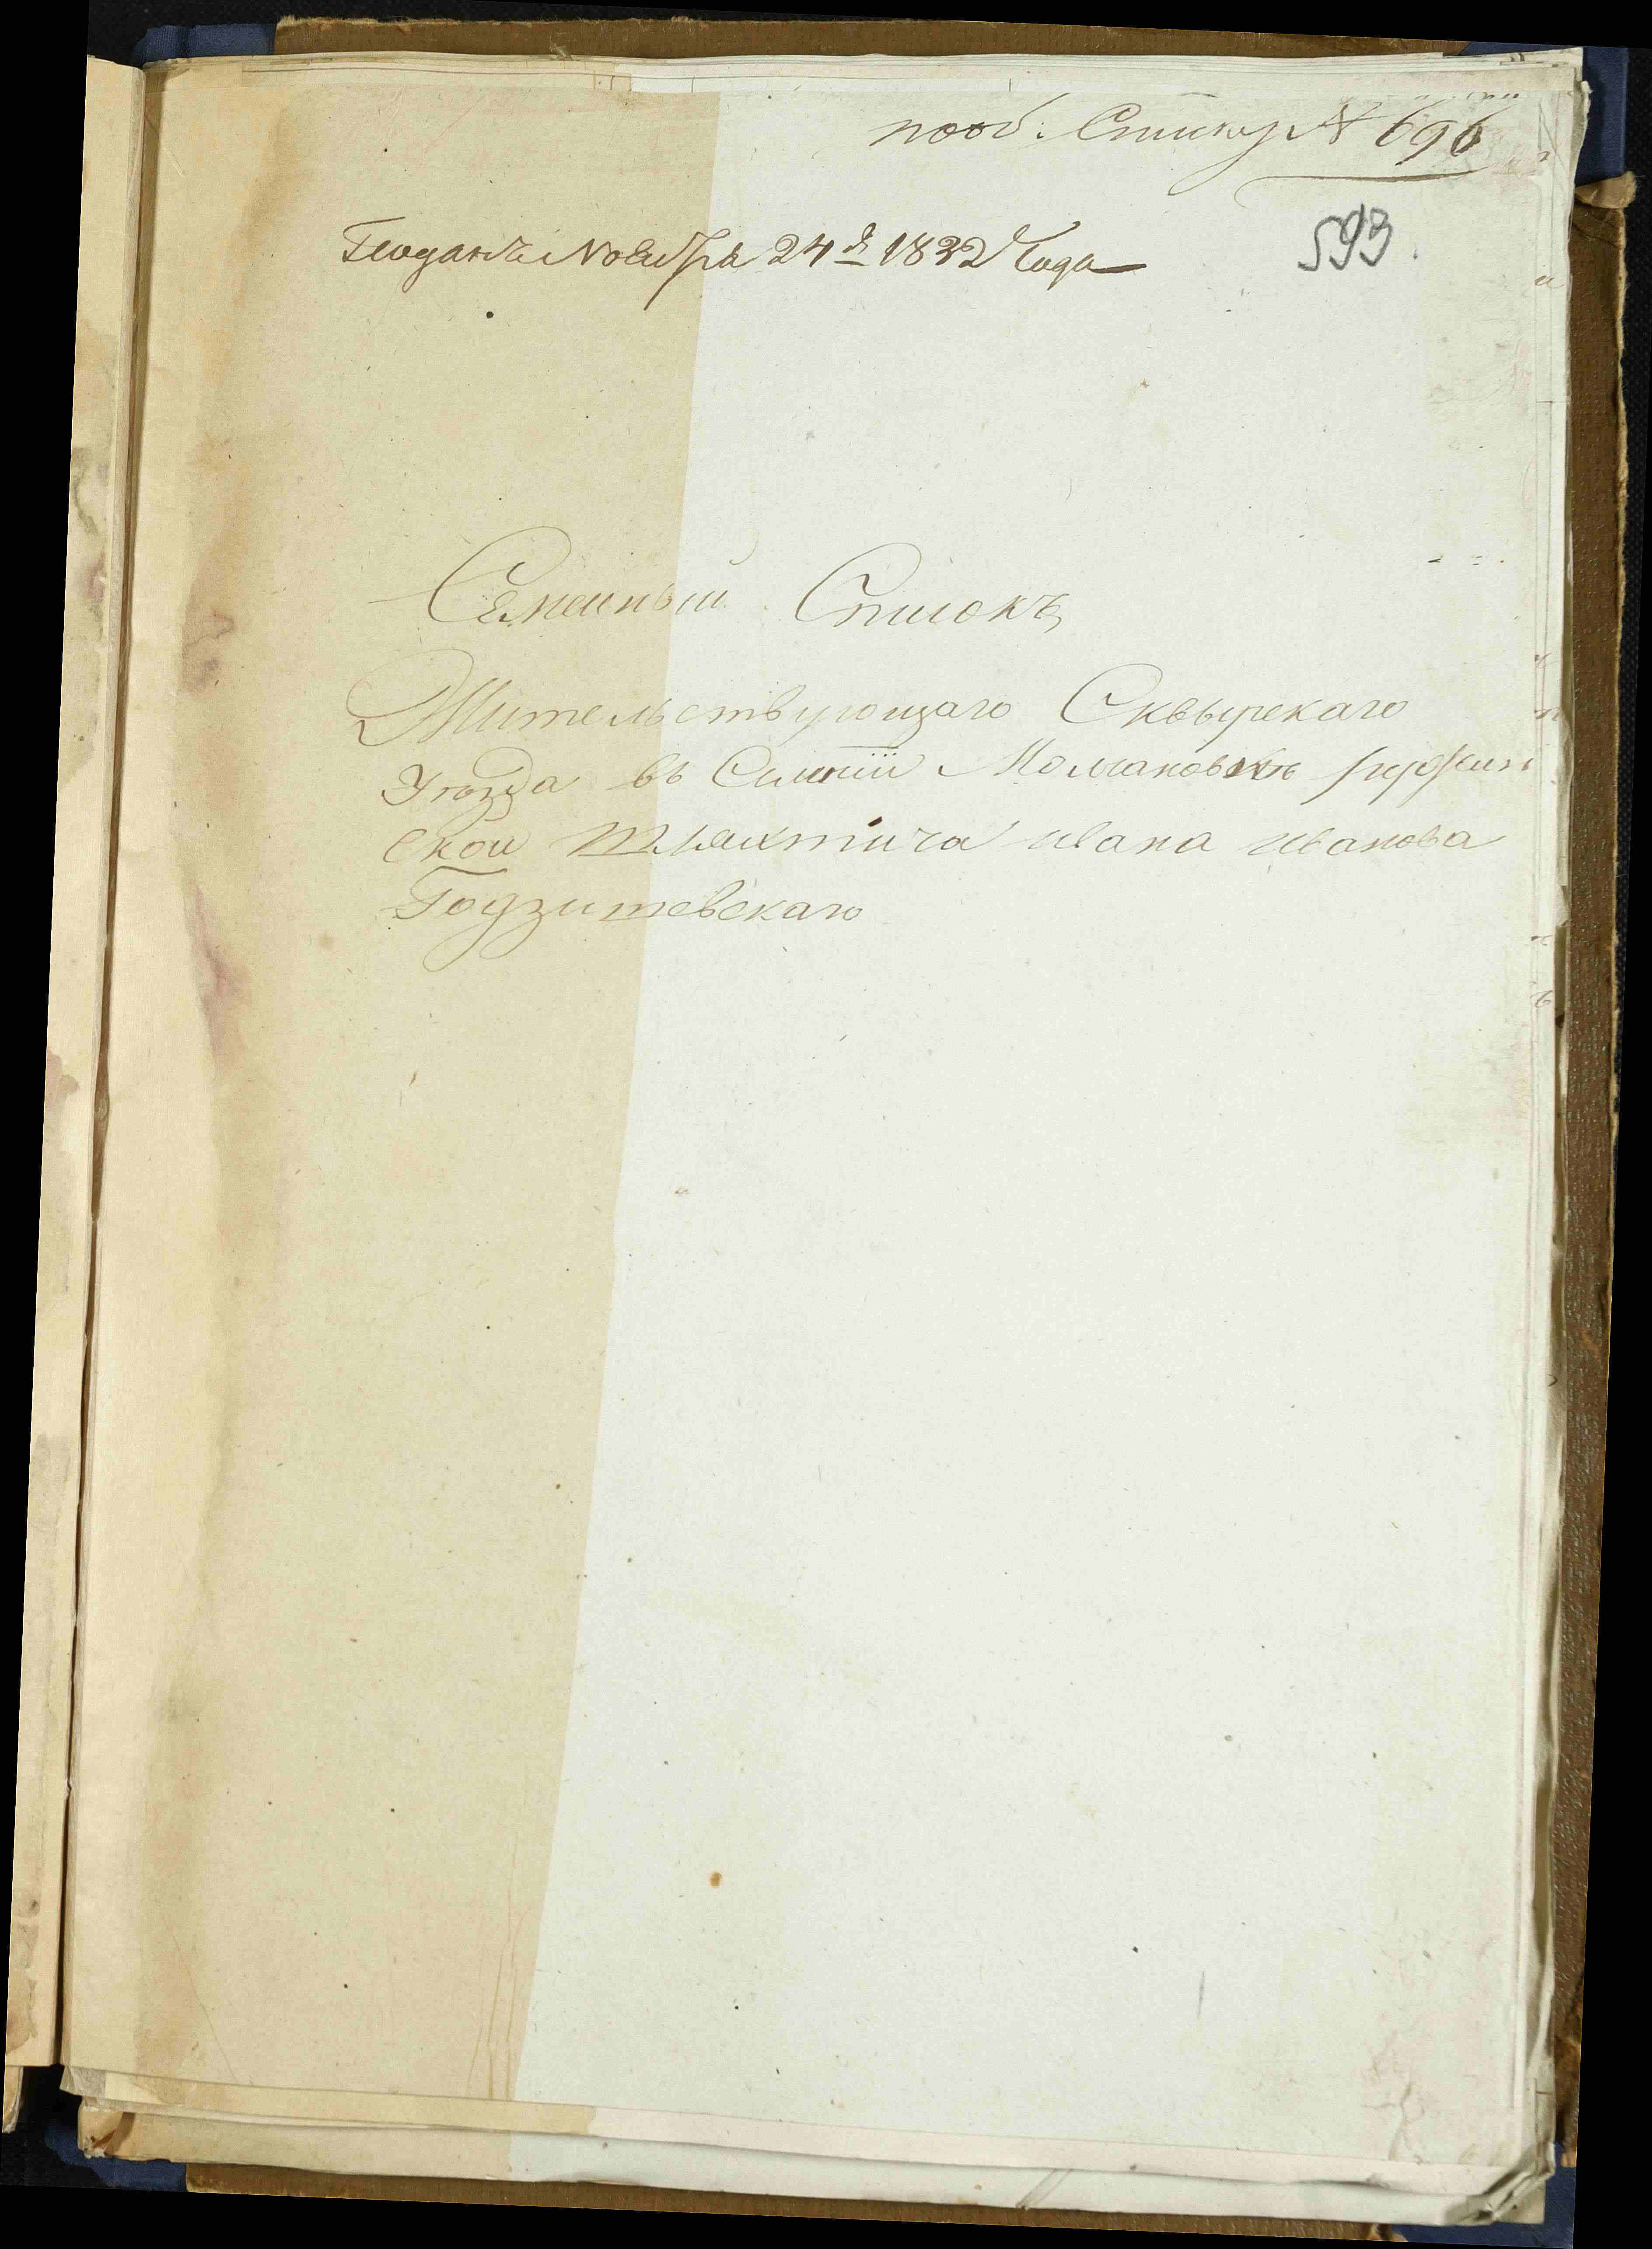 пооб. Списку № 696
593
Поданъ Ноября 24 д. 1832 Года
Семейный Списокъ
Жительствующаго Сквырскаго
Уѣзда въ Селении
ской Шляхтича Ивана Иванова
Годзишевскаго